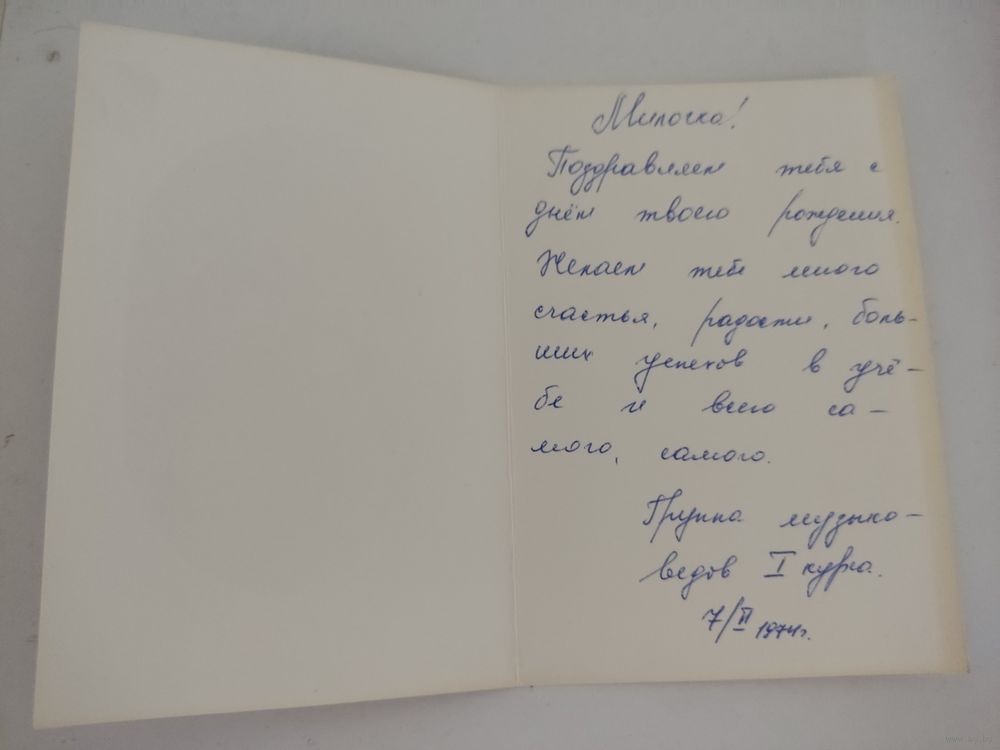 Милочка!
Поздравляем тебя с
днём твоего рождения.
Желаем тебе много
счастья, радости, боль-
ших успехов в учё-
бе и всего са-
мого, самого.
Группа музыко-
ведов I курса.
7/II 1974г.